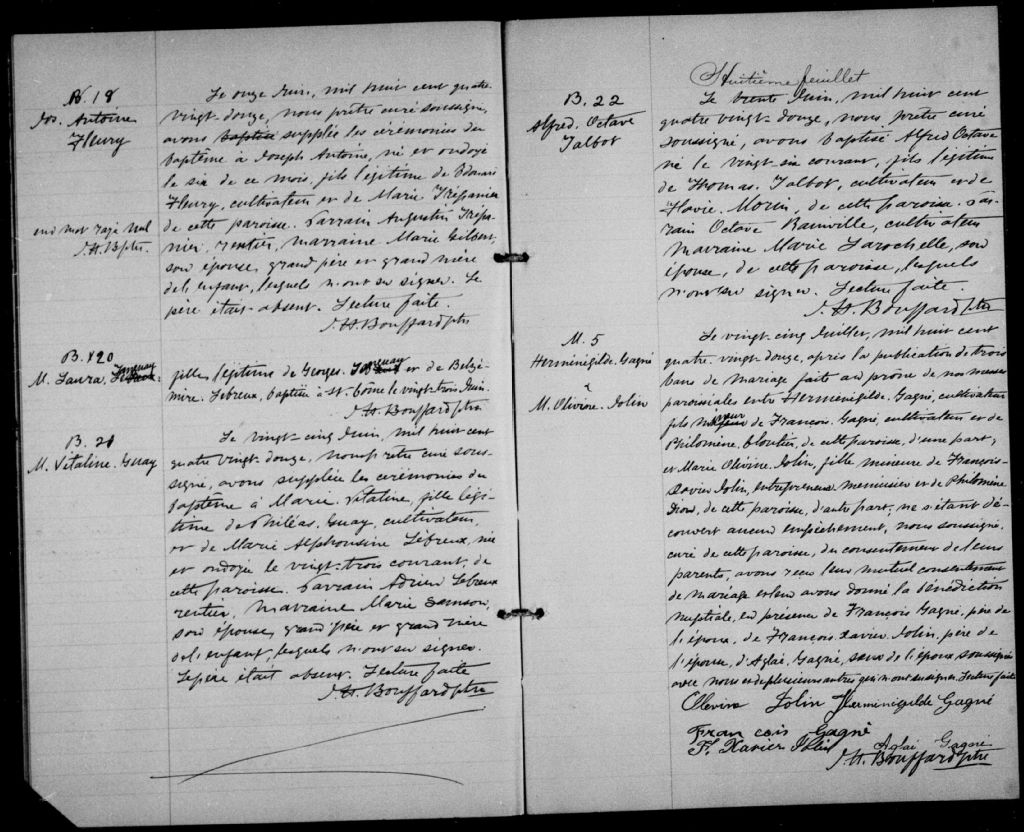 N. 18
Jos. Antoine
Fleury
un mot rayé nul
J.H.B ptre.
Le onze Juin, mil huit cent quatre
vingt-douze, nous prêtre curé soussigné,
avons baptisé suppléé les cérémonies du
baptême à Joseph Antoine, né et ondoyé
le six de ce mois, fils légitime de Edouard
Fleury, cultivateur et de Marie Trépanier
de cette paroisse. Parrain Augustin Trépa-
nier, rentier, marraine Marie Gilbert,
son épouse, grand père et grand mère
de l'enfant, lesquels n'ont su signer. Le
père était absent. Lecture faite.
J.H Bouffard ptre
B. 20
M. Laura
fille légitime de Georges et de Belzé-
mire. Lebreux, baptisée à St. Côme le vingt-trois Juin.
J.H. Bouffard ptre
B. 21
M. Vitaline. Guay
Le vingt-cinq Juin, mil huit cent
quatre vingt-douze, nous prêtre curé sous-
signé, avons suppléé les cérémonies du
baptême à Marie Vitaline, fille légi-
time de Philéas. Guay, cultivateur,
et de Marie Alphonsine Lebreux, née
et ondoyée le vingt-trois courant, de
cette paroisse. Parrain Adrien Lebreux
rentier, marraine Marie Samson,
son épouse, grand père et grand mère
de l'enfant, lesquels n'ont su signer.
Le père était absent. Lecture faite
J.H Bouffard ptre
Huitième feuillet
B. 22
Alfred. Octave
Talbot
Le trente Juin, mil huit cent
quatre vingt-douze, nous, prêtre curé
soussigné, avons baptisé Alfred Octave
né le vingt-six courant, fils légitime
de Thomas. Talbot, cultivateur et de
Flavie. Morin, de cette paroisse. Par-
rain Octave Rainville, cultivateur
marraine Marie Larochelle, son
épouse, de cette paroisse, lesquels
n'ont su signer. Lecture faite.
J.H. Bouffard ptre
M. 5
Herménégilde. Gagné
&
M. Olivine. Jolin
Le vingt-cinq Juillet, mil huit cent
quatre-vingt-douze, après la publication de trois
bans de mariage faite au prône de nos messes
paroissiales entre Herménégilde. Gagné, cultivateur
fils majeur de François. Gagné, cultivateur et de
Philomène. Cloutier, de cette paroisse, d'une part;
et Marie Olivine. Jolin, fille mineure de François-
Xavier Jolin, entrepreneur menuisier et de Philomène
Dion, de cette paroisse, d'autre part, ne s'étant dé-
couvert aucun empêchement, nous soussigné,
curé de cette paroisse, du consentement de leurs
parents, avons reçu leur mutuel consentement
de mariage et leur avons donné la bénédiction
nuptiale, en présence de François Gagné, père de
l'époux, de François. Xavier. Jolin, père de
l'épouse, d'Aglaé. Gagné, sœur de l'époux soussignés
avec nous et de plusieurs autres qui n'ont su signer. Lecture faite
Olevine Jolin Herménigilde Gagné
François Gagné
F. Xavier Jolin Aglai Gagné
J.H. Bouffard ptre